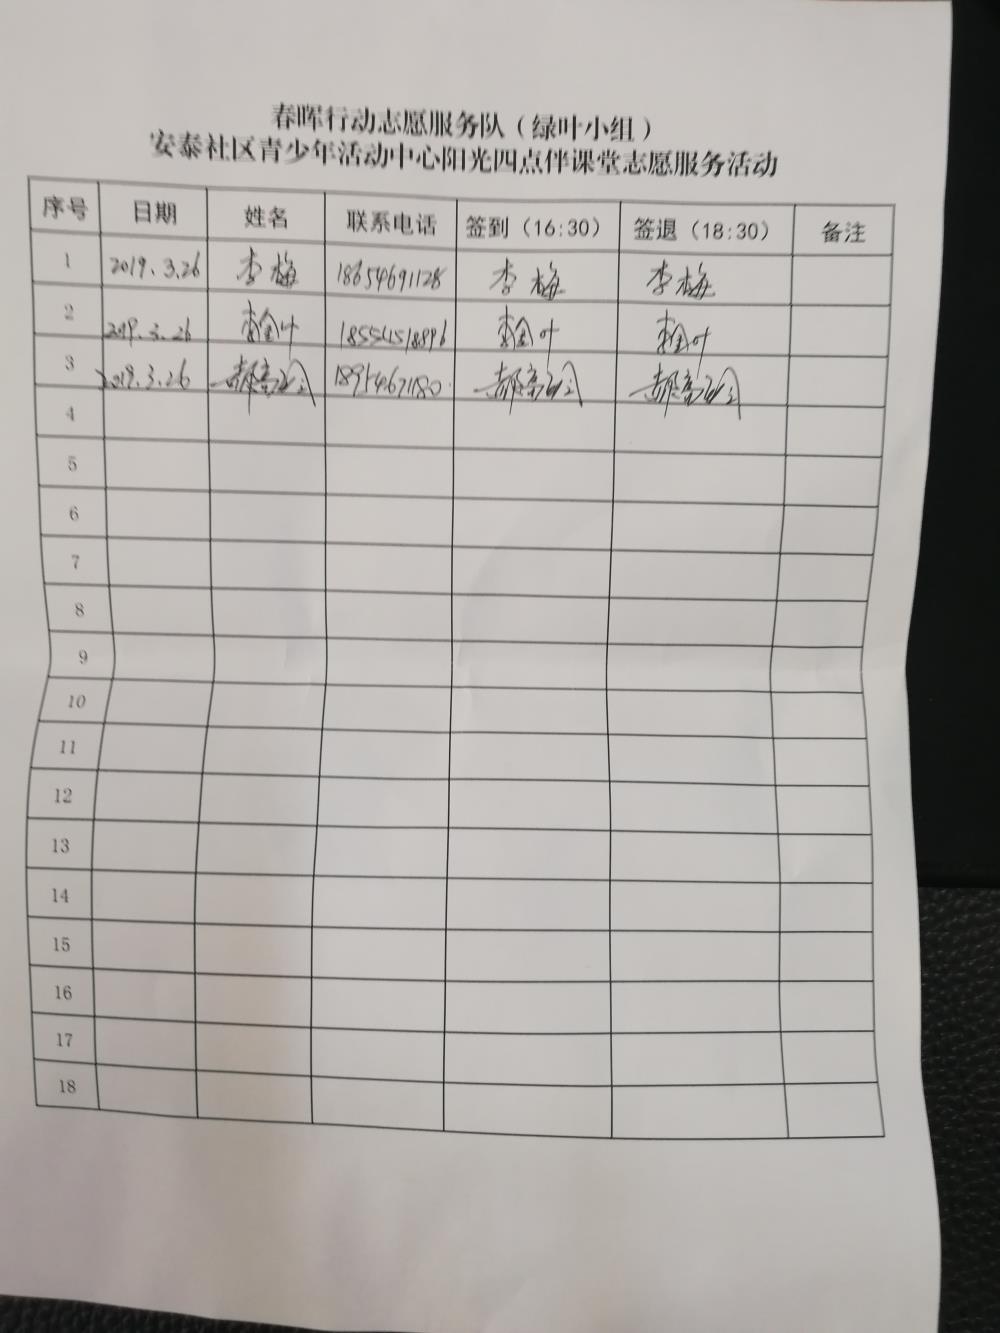 春晖行动志愿服务队（绿叶小组）
安泰社区青少年活动中心阳光四点伴课堂志愿服务活动
序号 日期 姓名 联系电话 签到（16:30） 签退（18:30） 备注
1 2019.3.26 李梅 18654691128 李梅 李梅
2 2019.3.26
3 2019.3.26 18954671180
4
5
6
7
8
9
10
11
12
13
14
15
16
17
18